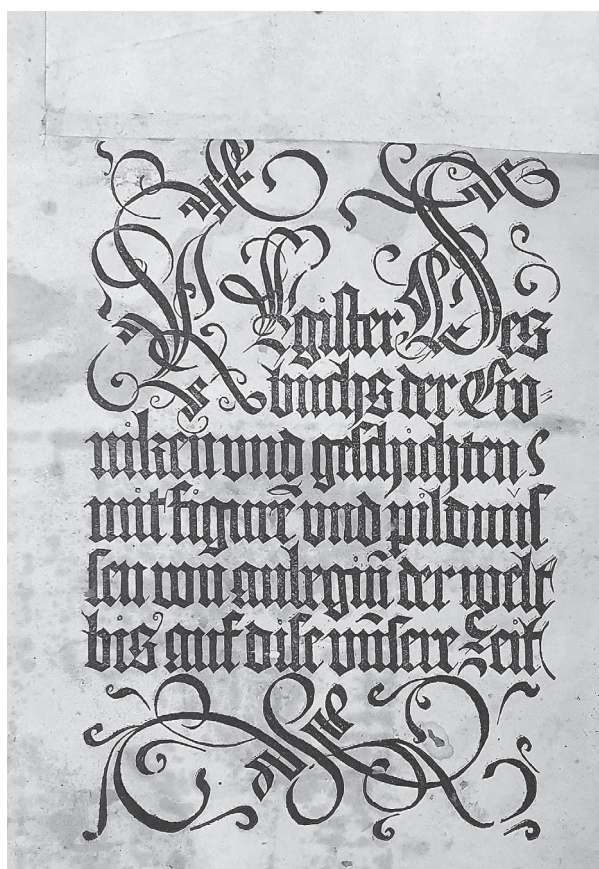 REgister Des
buchs der Cro-
niken und geschichten
mit figurē vnd pildnus
sen von anbegiñ der welt
bis auf dise vnsere zeit